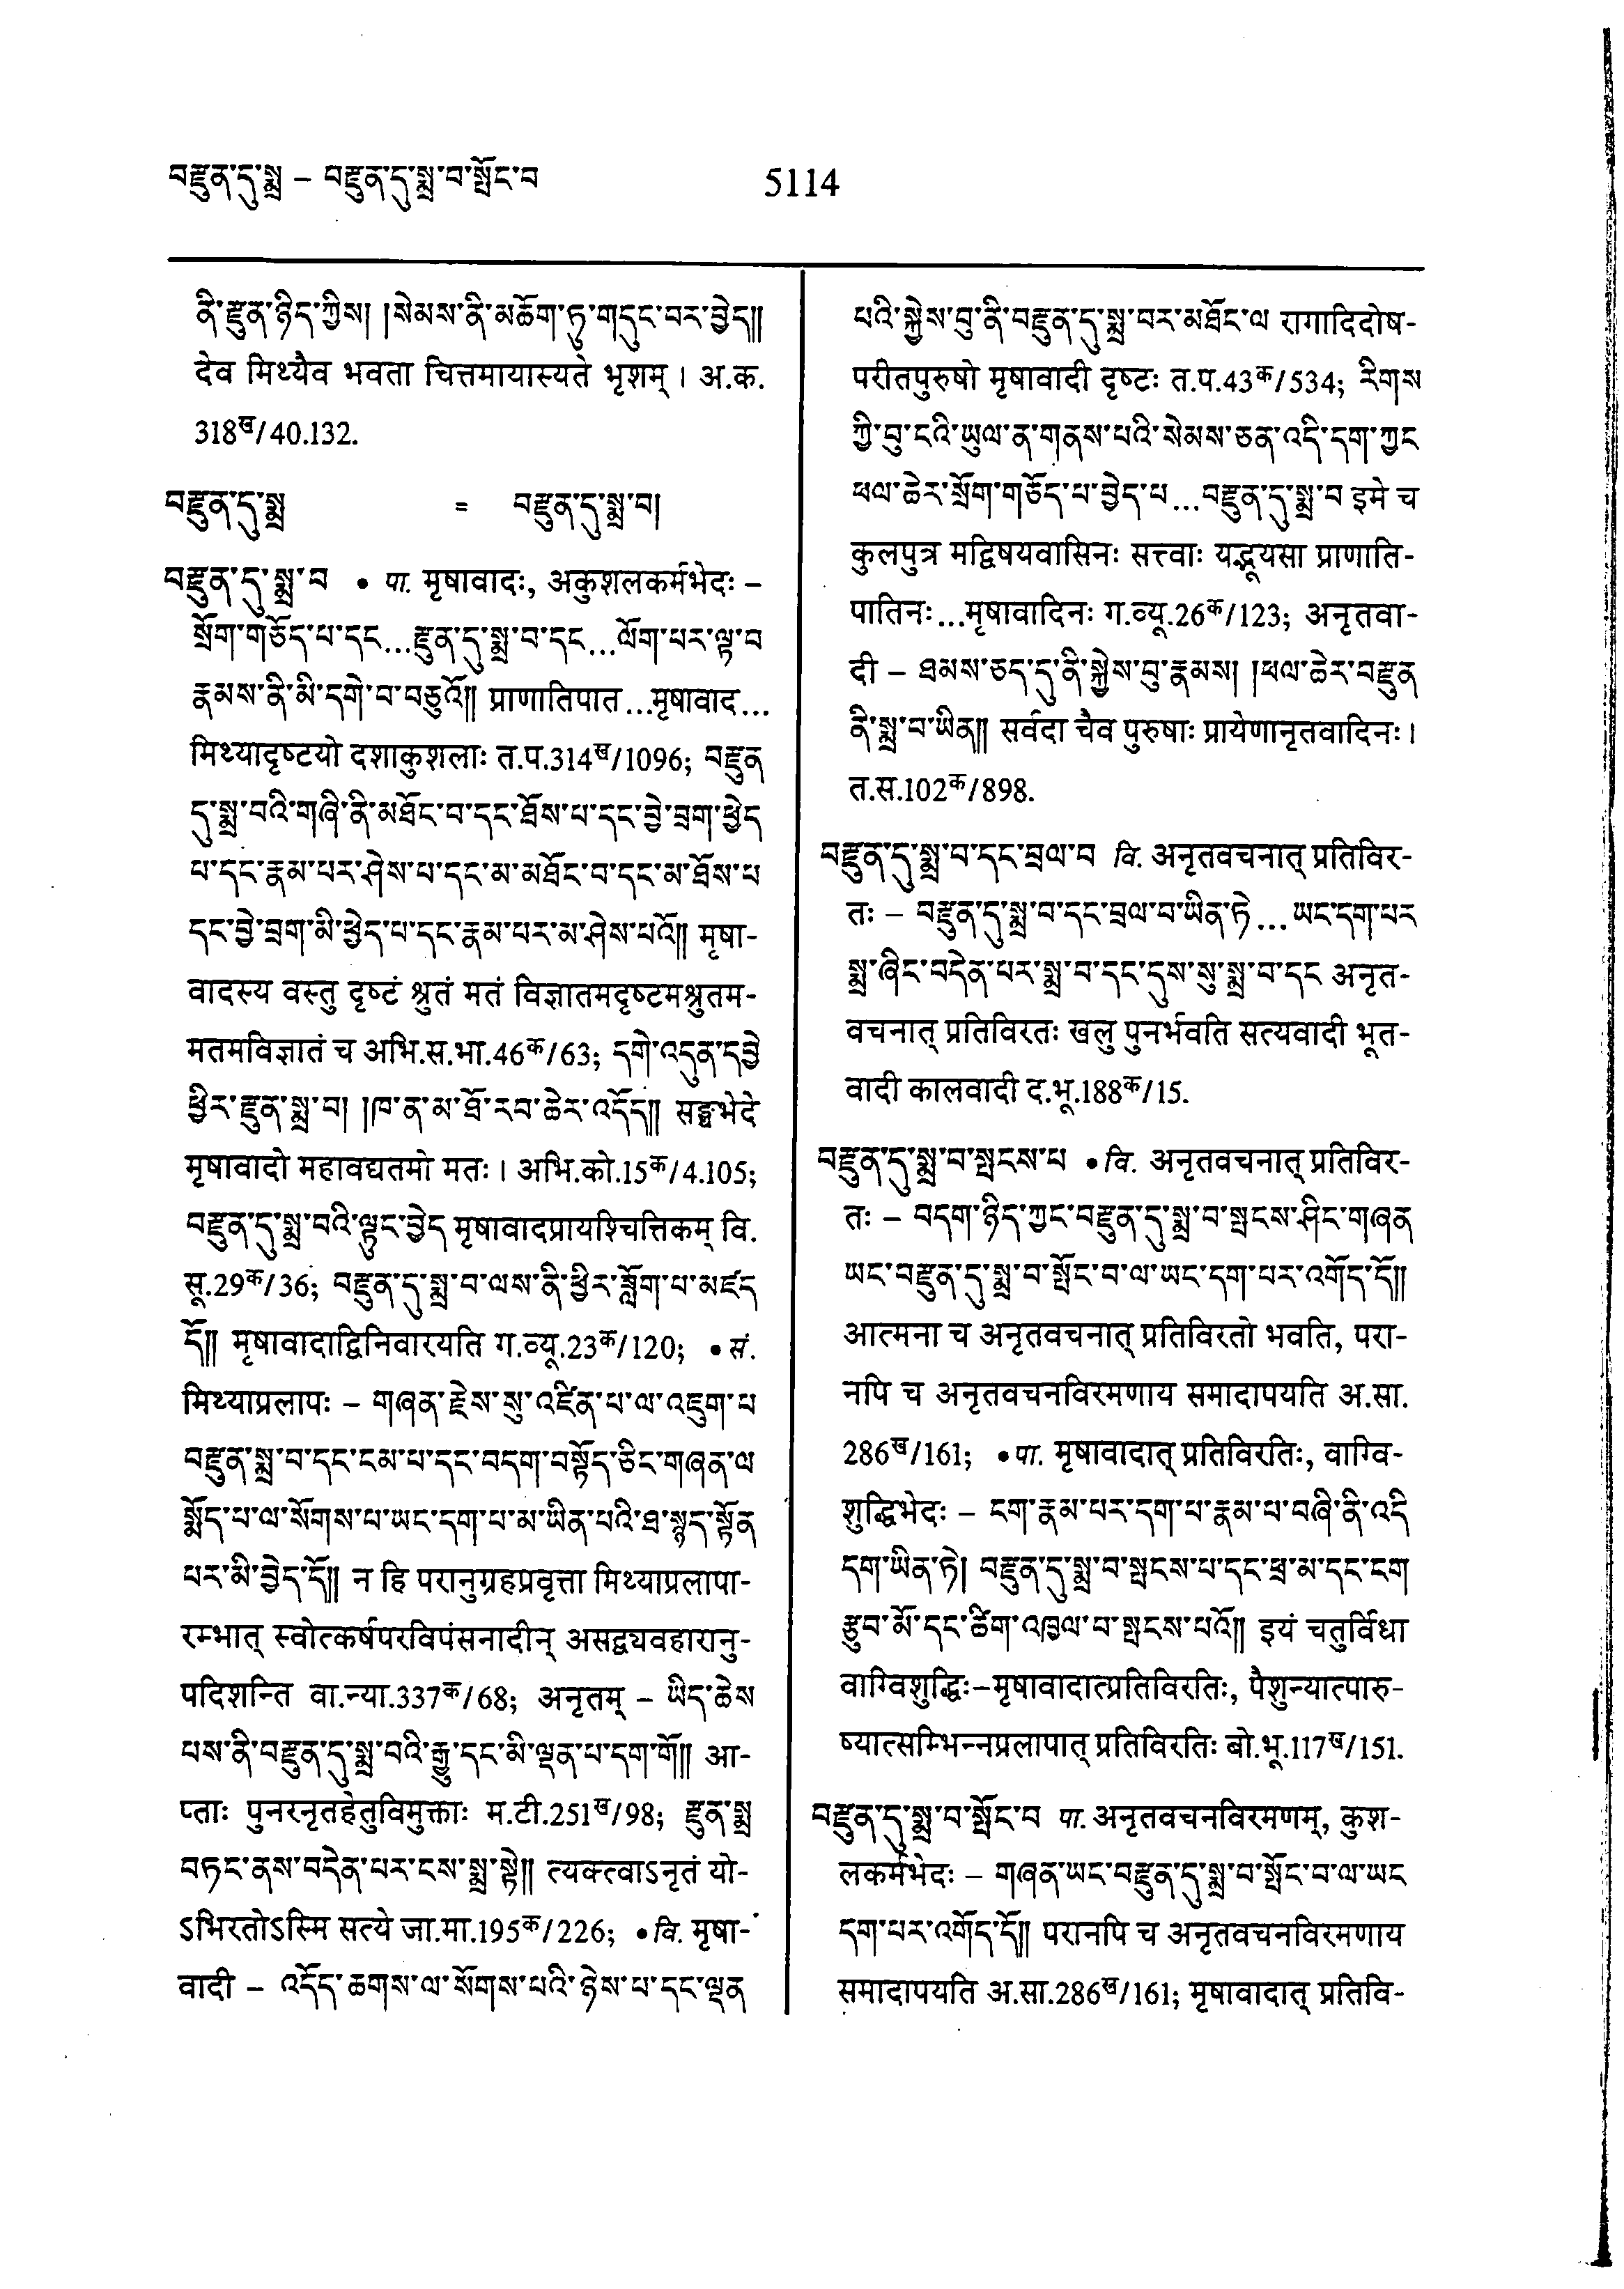 བརྫུན་དུ་སྨྲ – བརྫུན་དུ་སྨྲ་བ་སྤོང་བ
5114
ནི་རྫུན་ཉིད་ཀྱིས། །སེམས་ནི་མཆོག་ཏུ་གདུང་བར་བྱེད༎
देव मिथ्यैव भवता चित्तमायास्यते भृशम् । अ.क.
318ख/40.132.
བརྫུན་དུ་སྨྲ = བརྫུན་དུ་སྨྲ་བ།
བརྫུན་དུ་སྨྲ་བ • पा. मृषावादः, अकुशलकर्मभेदः –
སྲོག་གཅོད་པ་དང...རྫུན་དུ་སྨྲ་བ་དང...ལོག་པར་ལྟ་བ
རྣམས་ནི་མི་དགེ་བ་བཅུའོ༎ प्राणातिपात...मृषावाद...
मिथ्यादृष्टयो दशाकुशलाः त.प.314ख/1096; བརྫུན
དུ་སྨྲ་བའི་གཞི་ནི་མཐོང་བ་དང་ཐོས་པ་དང་བྱེ་བྲག་ཕྱེད
པ་དང་རྣམ་པར་ཤེས་པ་དང་མ་མཐོང་བ་དང་མ་ཐོས་པ
དང་བྱེ་བྲག་མི་ཕྱེད་པ་དང་རྣམ་པར་མ་ཤེས་པའོ༎ मृषा-
वादस्य वस्तु दृष्टं श्रुतं मतं विज्ञातमदृष्टमश्रुतम-
मतमविज्ञातं च अभि.स.भा.46क/63; དགེ་འདུན་དབྱེ
ཕྱིར་རྫུན་སྨྲ་བ། །ཁ་ན་མ་ཐོ་རབ་ཆེར་འདོད༎ सङ्घभेदे
मृषावादो महावद्यतमो मतः । अभि.को.15क/4.105;
བརྫུན་དུ་སྨྲ་བའི་ལྟུང་བྱེད मृषावादप्रायश्चित्तिकम् वि.
सू.29क/36; བརྫུན་དུ་སྨྲ་བ་ལས་ནི་ཕྱིར་བློག་པ་མཛད
དོ༎ मृषावादाद्विनिवारयति ग.व्यू.23क/120; • सं.
मिथ्याप्रलापः – གཞན་རྗེས་སུ་འཛིན་པ་ལ་འཇུག་པ
བརྫུན་སྨྲ་བ་དང་ངམ་པ་དང་བདག་བསྟོད་ཅིང་གཞན་ལ
སྨོད་པ་ལ་སོགས་པ་ཡང་དག་པ་མ་ཡིན་པའི་ཐ་སྙད་སྟོན
པར་མི་བྱེད་དོ༎ न हि परानुग्रहप्रवृत्ता मिथ्याप्रलापा-
रम्भात् स्वोत्कर्षपरविपंसनादीन् असद्व्यवहारानु-
पदिशन्ति वा.न्या.337क/68; अनृतम् – ཡིད་ཆེས
པས་ནི་བརྫུན་དུ་སྨྲ་བའི་རྒྱུ་དང་མི་ལྡན་པ་དག་གོ༎ आ-
प्ताः पुनरनृतहेतुविमुक्ताः म.टी.251ख/98; རྫུན་སྨྲ
བཏང་ནས་བདེན་པར་ངས་སྨྲ་སྟེ༎ त्यक्त्वाऽनृतं यो-
ऽभिरतोऽस्मि सत्ये जा.मा.195क/226; • वि. मृषा-
वादी – འདོད་ཆགས་ལ་སོགས་པའི་ཉེས་པ་དང་ལྡན
པའི་སྐྱེས་བུ་ནི་བརྫུན་དུ་སྨྲ་བར་མཐོང་ལ रागादिदोष-
परीतपुरुषो मृषावादी दृष्टः त.प.43क/534; རིགས
ཀྱི་བུ་ངའི་ཡུལ་ན་གནས་པའི་སེམས་ཅན་འདི་དག་ཀྱང
ཕལ་ཆེར་སྲོག་གཅོད་པ་བྱེད་པ...བརྫུན་དུ་སྨྲ་བ इमे च
कुलपुत्र मद्विषयवासिनः सत्त्वाः यद्भूयसा प्राणाति-
पातिनः...मृषावादिनः ग.व्यू.26क/123; अनृतवा-
दी – ཐམས་ཅད་དུ་ནི་སྐྱེས་བུ་རྣམས། །ཕལ་ཆེར་བརྫུན
ནི་སྨྲ་བ་ཡིན༎ सर्वदा चैव पुरुषाः प्रायेणानृतवादिनः ।
त.स.102क/898.
བརྫུན་དུ་སྨྲ་བ་དང་བྲལ་བ वि. अनृतवचनात् प्रतिविर-
तः – བརྫུན་དུ་སྨྲ་བ་དང་བྲལ་བ་ཡིན་ཏེ...ཡང་དག་པར
སྨྲ་ཞིང་བདེན་པར་སྨྲ་བ་དང་དུས་སུ་སྨྲ་བ་དང अनृत-
वचनात् प्रतिविरतः खलु पुनर्भवति सत्यवादी भूत-
वादी कालवादी द.भू.188क/15.
བརྫུན་དུ་སྨྲ་བ་སྤངས་པ • वि. अनृतवचनात् प्रतिविर-
तः – བདག་ཉིད་ཀྱང་བརྫུན་དུ་སྨྲ་བ་སྤངས་ཤིང་གཞན
ཡང་བརྫུན་དུ་སྨྲ་བ་སྤོང་བ་ལ་ཡང་དག་པར་འགོད་དོ༎
आत्मना च अनृतवचनात् प्रतिविरतो भवति, परा-
नपि च अनृतवचनविरमणाय समादापयति अ.सा.
286ख/161; • पा. मृषावादात् प्रतिविरतिः, वाग्वि-
शुद्धिभेदः – ངག་རྣམ་པར་དག་པ་རྣམ་པ་བཞི་ནི་འདི
དག་ཡིན་ཏེ། བརྫུན་དུ་སྨྲ་བ་སྤངས་པ་དང་ཕྲ་མ་དང་ངག
རྩུབ་མོ་དང་ཚིག་འཁྱལ་བ་སྤངས་པའོ༎ इयं चतुर्विधा
वाग्विशुद्धिः–मृषावादात्प्रतिविरतिः, पैशुन्यात्पारु-
ष्यात्सम्भिन्नप्रलापात् प्रतिविरतिः बो.भू.117ख/151.
བརྫུན་དུ་སྨྲ་བ་སྤོང་བ पा. अनृतवचनविरमणम्, कुश-
लकर्मभेदः – གཞན་ཡང་བརྫུན་དུ་སྨྲ་བ་སྤོང་བ་ལ་ཡང
དག་པར་འགོད་དོ༎ परानपि च अनृतवचनविरमणाय
समादापयति अ.सा.286ख/161; मृषावादात् प्रतिवि-